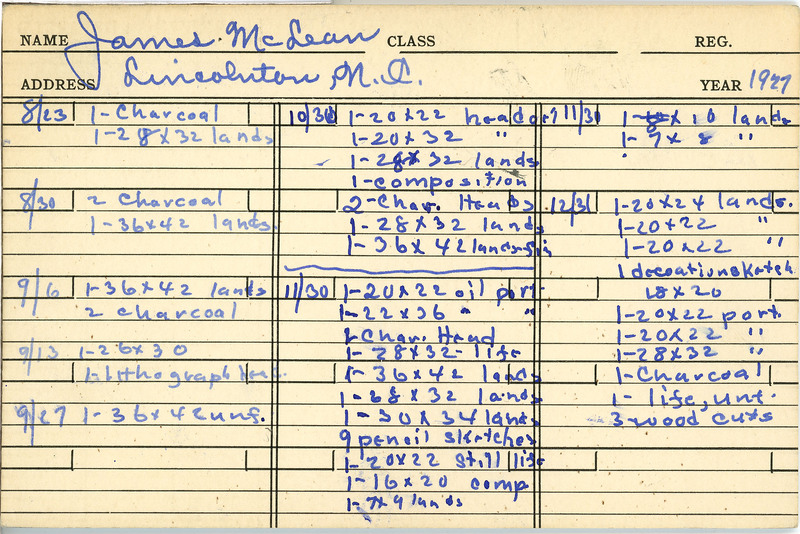 NAME James McLean CLASS REG.
ADDRESS Lincolnton, N.C. YEAR 1927
8/23 1-Charcoal
1-28x32 lands
8/30 2 Charcoal
1-36x42 lands.
9/6 1-36x42 lands
2 charcoal
9/13 1-26x30
1 lithograph
9/27 1-36x42 unf.
10/30 1-20x22 head
1-20x32 "
1-28x32 lands
1-composition
2-Char. Heads
1-28x32 lands
1-36x42 lands-
11/30 1-20x22 oil port.
1-22x36 " "
2 Char. Head
1-28x32-life
1-36x42 lands
1-28x32 lands
1-30x34 lands
9 pencil sketches
1-20x22 still life
1-16x20 comp
1-7x9 lands
11/30 1-8x10 lands
1-7x8 "
12/31 1-20x24 lands.
1-20x22 "
1-20x22 "
1 decoation sketch
18x20
1-20x22 port.
1-20x22 "
1-28x32 "
1-Charcoal
1-life, unf.
3-wood cuts